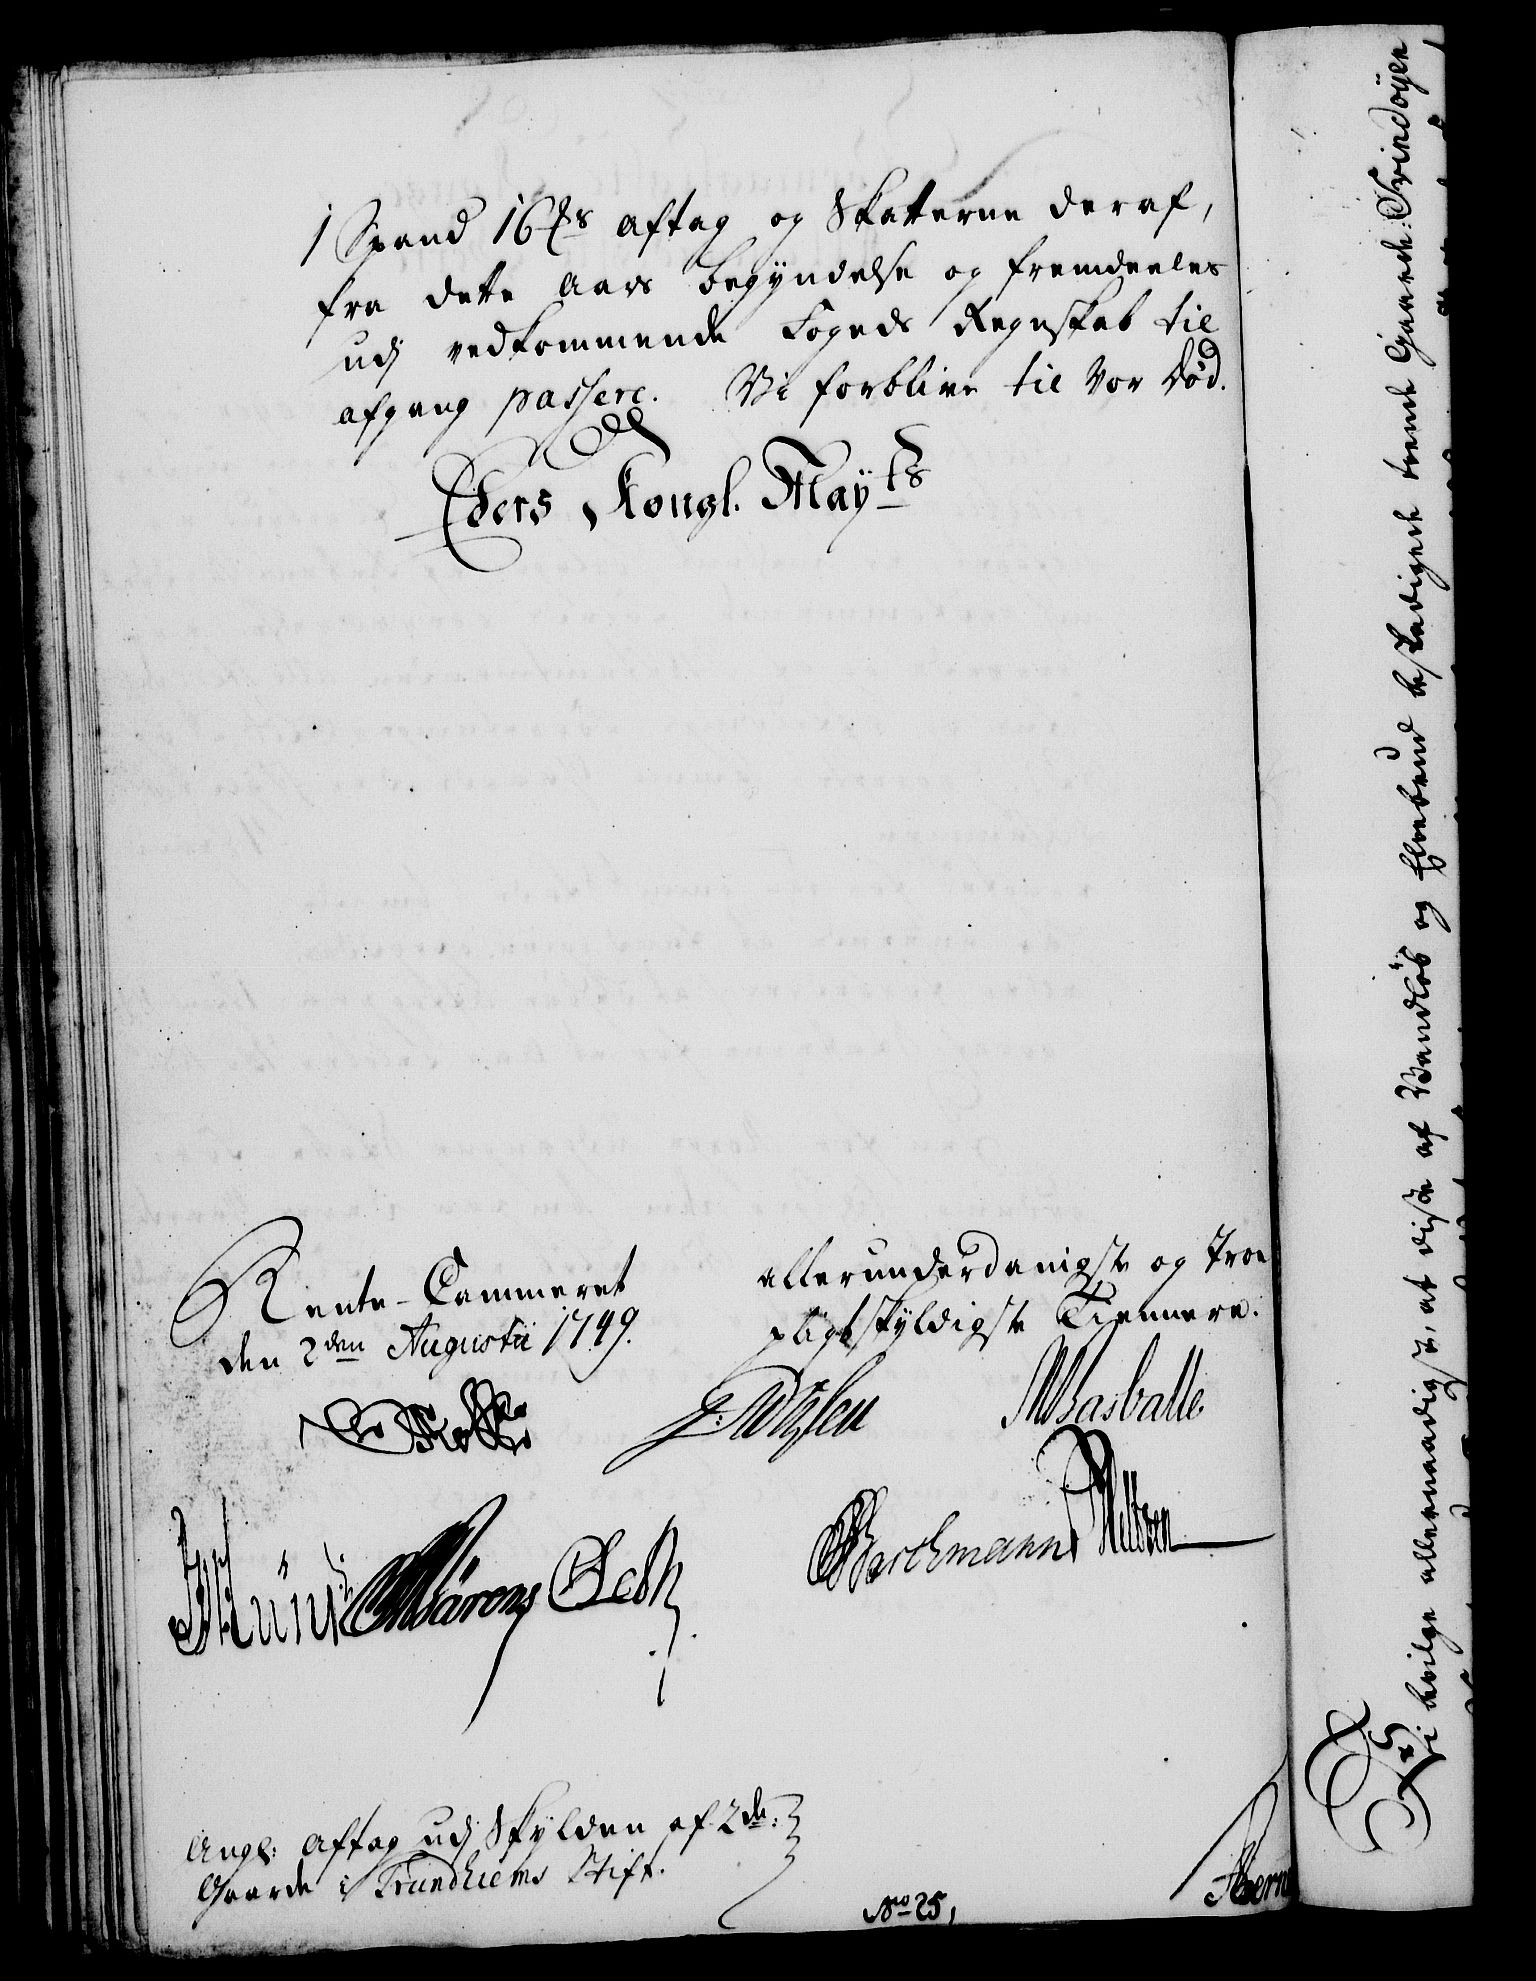 1 Spand 16 ℔s aftag og Skatterne deraf,
fra dette Aars begyndelse og fremdeeles
udj vedkommende Fogeds Regnskab til
afgang passere. Vi forblive til Vor Död.
Eders Kongl. Mayts
Rente-Cammeret
den 2den Augusti 1749.
allerunderdanigste og Troe
pligtskyldigste Tiennere.
Wasballe
Barchmann
Angl: Aftag udj Skylden af 2de
Gaarde i Trundhiems Stift.
No 25,
Vi bevilge allernaadigst, at disse af Vandlöb og Elvebrud beskadigede trende Gaarde: Svindöyen